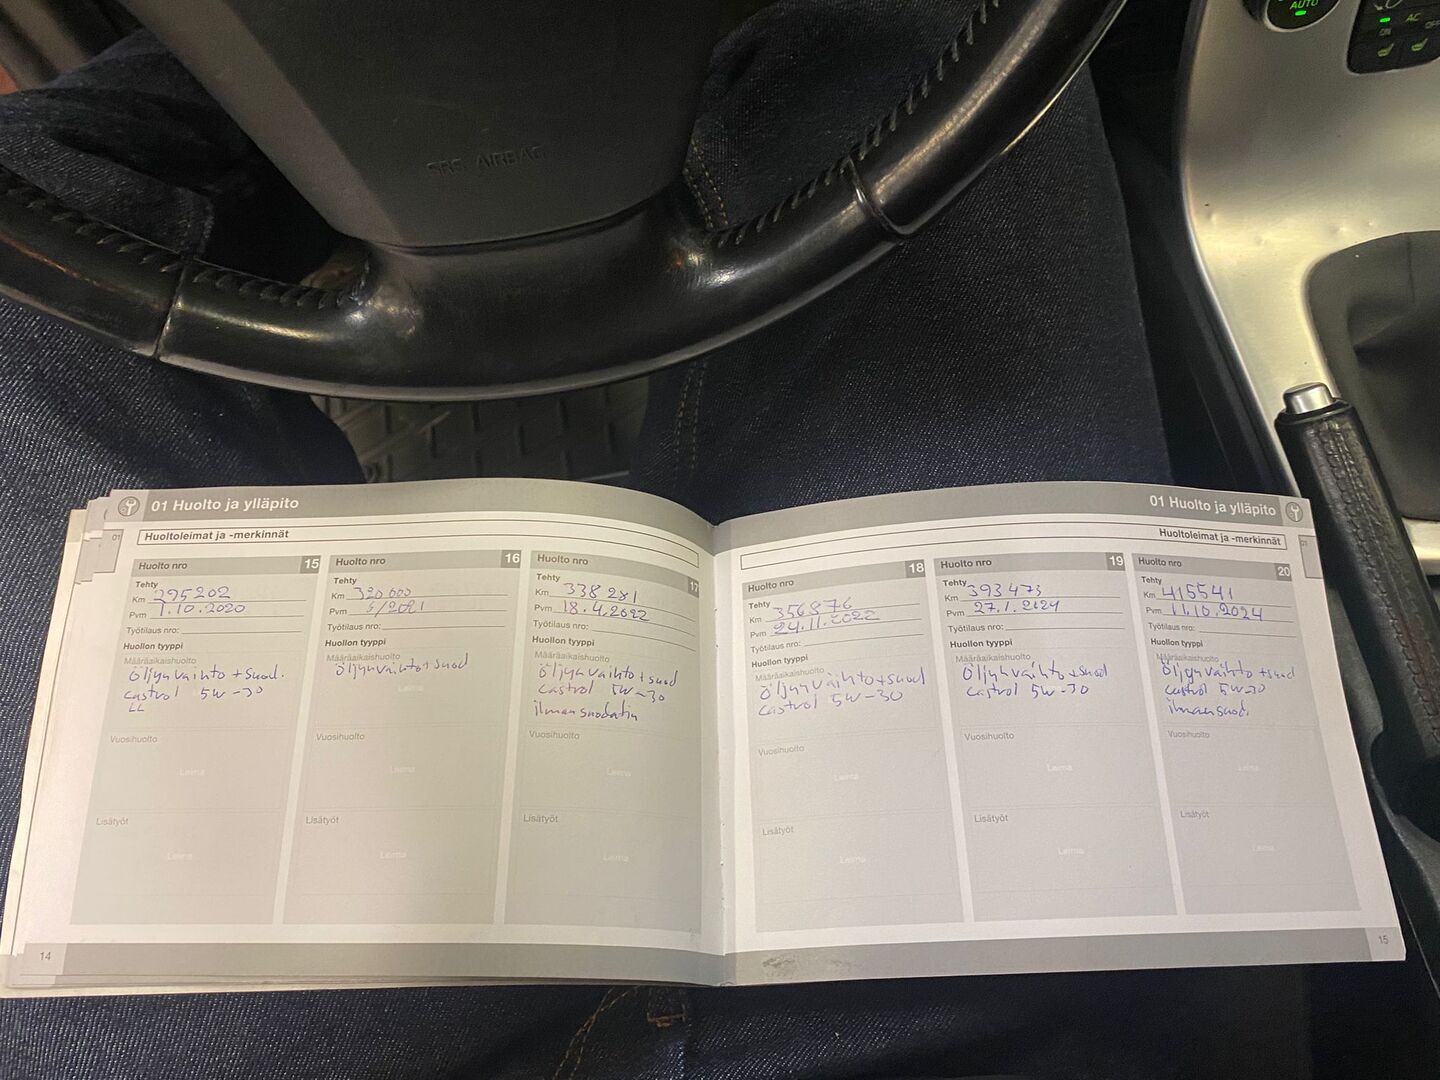 AUTO
AC
OFF
ON
SRS AIRBAG
01 Huolto ja ylläpito
Huoltoleimat ja -merkinnät
01
Huolto nro 15
Tehty
Km 295202
Pvm 1.10.2020
Työtilaus nro:
Huollon tyyppi
Määräaikaishuolto
öljynvaihto + suod.
castrol 5w-30
LL
Vuosihuolto
Leima
Lisätyöt
Leima
Huolto nro 16
Tehty
Km 320000
Pvm 5/2021
Työtilaus nro:
Huollon tyyppi
Määräaikaishuolto
öljynvaihto + suod
Leima
Vuosihuolto
Leima
Lisätyöt
Leima
Huolto nro 17
Tehty
Km 338281
Pvm 18.4.2022
Työtilaus nro:
Huollon tyyppi
Määräaikaishuolto
öljynvaihto + suod
castrol 5w-30
ilmansuodatin
Vuosihuolto
Leima
Lisätyöt
Leima
14
01 Huolto ja ylläpito
Huoltoleimat ja -merkinnät
01
Huolto nro 18
Tehty
Km 356876
Pvm 24.11.2022
Työtilaus nro:
Huollon tyyppi
Määräaikaishuolto
öljynvaihto + suod
castrol 5w-30
Vuosihuolto
Leima
Lisätyöt
Leima
Huolto nro 19
Tehty
Km 393473
Pvm 27.1.2024
Työtilaus nro:
Huollon tyyppi
Määräaikaishuolto
öljynvaihto + suod
castrol 5w-30
Vuosihuolto
Leima
Lisätyöt
Leima
Huolto nro 20
Tehty
Km 415541
Pvm 11.10.2024
Työtilaus nro:
Huollon tyyppi
Määräaikaishuolto
öljynvaihto + suod
castrol 5w-30
ilmansuod.
Vuosihuolto
Leima
Lisätyöt
Leima
15